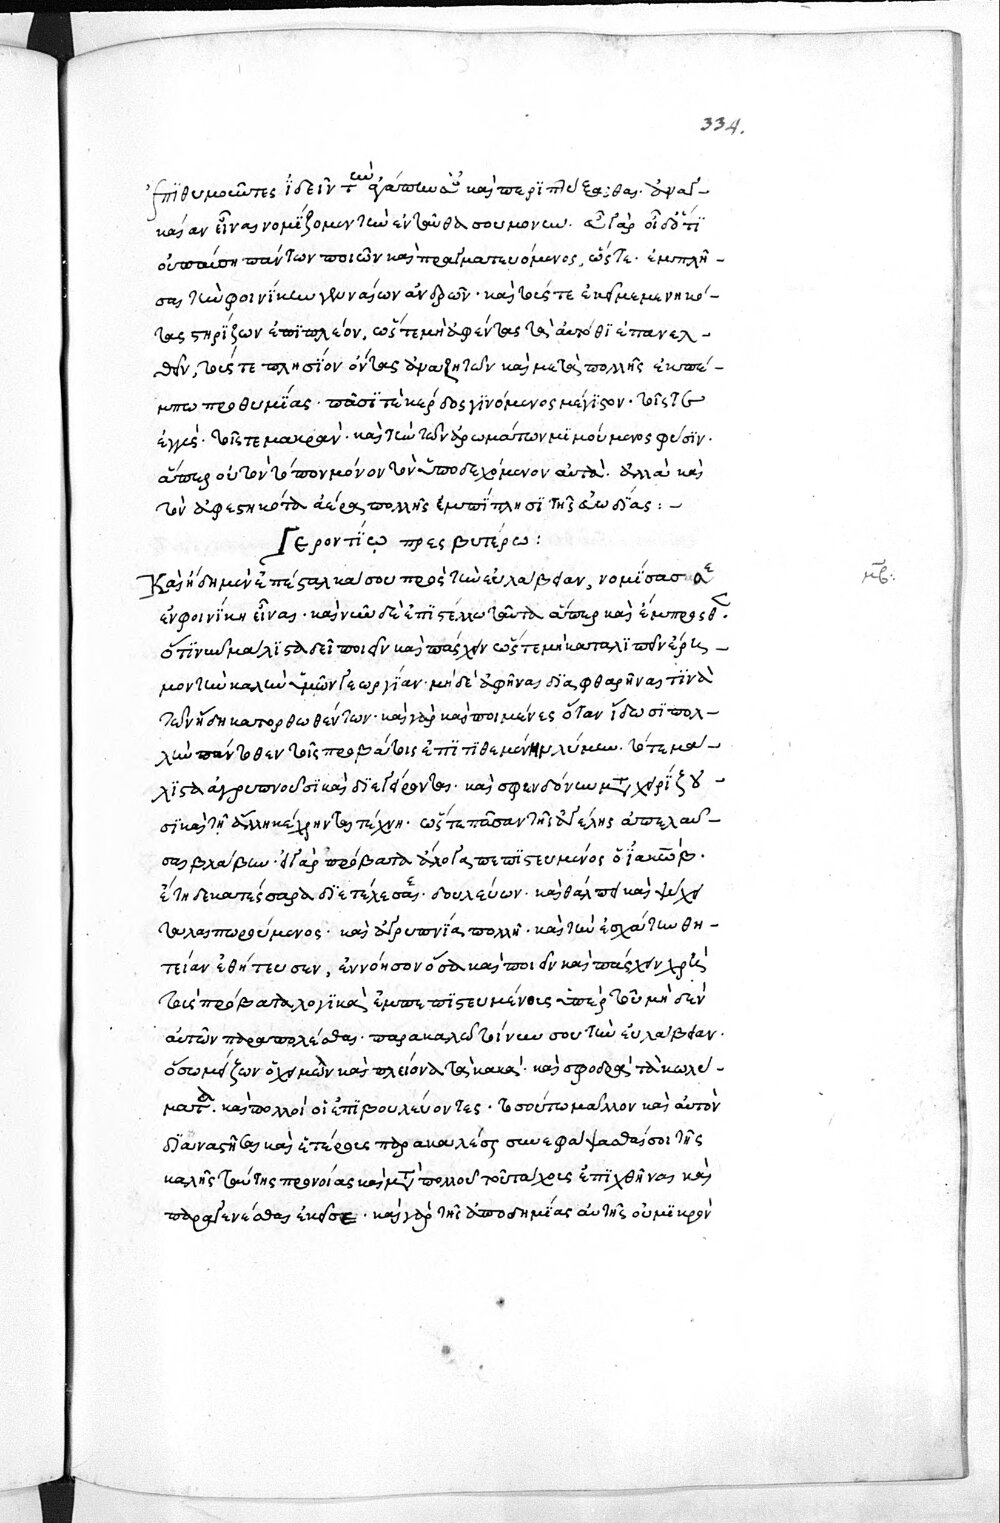 334.
ἐπϊθυμοῦντες ἰδεῖν τὴν ἀγάπην σου καὶ περϊπτύξασθαι. ἀναγ-
καίαν εἶναι νομΐζομεν τὴν ἐνταῦθά σου μονήν. εὖ γὰρ οἶδ' ὅτϊ
οὐ παύση πάντων ποιῶν καὶ πραγματευόμενος, ὥστε ἐμπλῆ-
σαι τὴν φοινίκην γενναίων ἀνδρῶν. καὶ τούς τε ἐκεῖ μεμενηκό-
τας στηρΐζων ἐπϊπλέον, ὥστε μὴ ἀφέντας τὰ αὐτόθϊ ἐπανελ-
θεῖν, τούς τε πλησΐον ὄντας ἀναζητῶν καὶ μετὰ πολλῆς ἐκπέ-
μπων προθυμΐας. πᾶσΐ τε κέρδος γϊνόμενος μέγϊστον. τοῖς τε
ἐγγύς. τοῖς τε μακράν. καὶ τὴν τῶν ἀρωμάτων μϊμούμενος φύσϊν.
ἅπερ οὐ τὸν τόπον μόνον τὸν ὑποδεχόμενον αὐτά. ἀλλὰ καὶ
τὸν ἀφεστηκότα ἀέρα πολλῆς ἐμπΐπλησϊ τῆς εὐωδΐας: -
Γεροντΐῳ πρεσβυτέρω:
Καὶ ἤδη μὲν ἐπέσταλκά σου πρὸς τὴν εὐλάβειαν, νομΐσας σε
μβ:
ἐν φοινΐκη εἶναι. καὶ νῦν δὲ ἐπϊστέλλω ταῦτα ἅπερ καὶ ἔμπροσθεν.
ὅτϊ νῦν μάλϊστα δεῖ ποιεῖν καὶ πάσχειν ὥστε μὴ καταλϊπεῖν ἔρη-
μον τὴν καλὴν ὑμῶν γεωργΐαν. μηδὲ ἀφῆναι δϊαφθαρῆναι τϊνὰ
τῶν ἤδη κατορθωθέντων. καὶ γὰρ καὶ ποιμένες ὅταν ἴδωσϊ πολ-
λὴν πάντοθεν τοῖς προβάτοις ἐπϊτϊθεμένην λύμην. τότε μά-
λϊστα ἀγρυπνοῦσϊ καὶ δϊεγείρονται. καὶ σφενδόνην μεταχειρΐζου-
σϊ καὶ τῆ ἄλλη κέχρηνται τέχνη. ὥστε πᾶσαν τῆς ἀγέλης ἀπελά-
σαι βλάβην. εἰ γὰρ πρόβατα ἄλογα πεπϊστευμένος ὁ ἰακὼβ.
ἔτη δεκατέσσαρα δϊετέλεσε. δουλεύων. καὶ θάλπει καὶ ψύχει
ταλαιπωρούμενος. καὶ ἀγρυπνΐα πολλῆ. καὶ τὴν ἐσχάτην θη-
τείαν ἐθήτευσεν, ἐννόησον ὅσα καὶ ποιεῖν καὶ πάσχειν χρὴ
τοὺς πρόβατα λογϊκὰ ἐμπεπϊστευμένους ὑπὲρ τοῦ μηδὲν
αὐτῶν παραπολέσθαι. παρακαλῶ τοίνυν σου τὴν εὐλάβειαν.
ὅσω μεΐζων ὁ χειμὼν καὶ πλείονα τὰ κακά. καὶ σφοδρὰ τὰ κωλύ-
ματα. καὶ πολλοὶ οἱ ἐπϊβουλεύοντες. τοσούτω μᾶλλον καὶ αὐτὸν
δϊαναστῆναι καὶ ἑτέρους παρακαλέσαι συνεφάψασθαί σοι τῆς
καλῆς ταύτης προνοίας καὶ μετὰ πολλοῦ τοῦ τάχους ἐπϊχθῆναι καὶ
παραγενέσθαι ἐκεῖσε. καὶ γὰρ τῆς ἀποδημΐας αὐτῆς οὐ μϊκρὸν